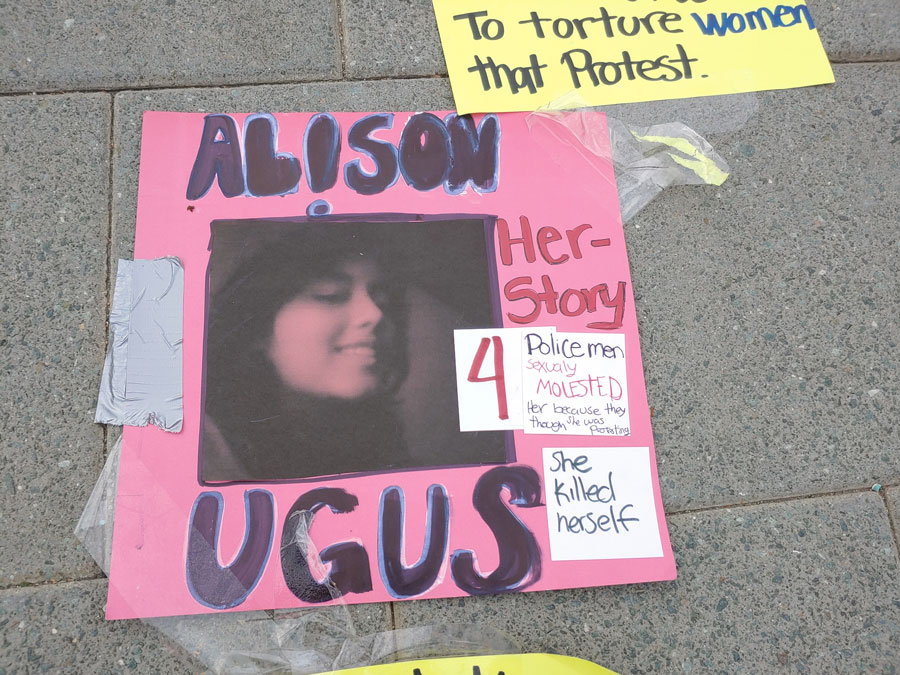 To torture women
that Protest.
ALISON
Her-
Story
4
Police men
sexualy
MOLESTED
Her because they
though she was
Protesting
She
killed
herself
UGUS